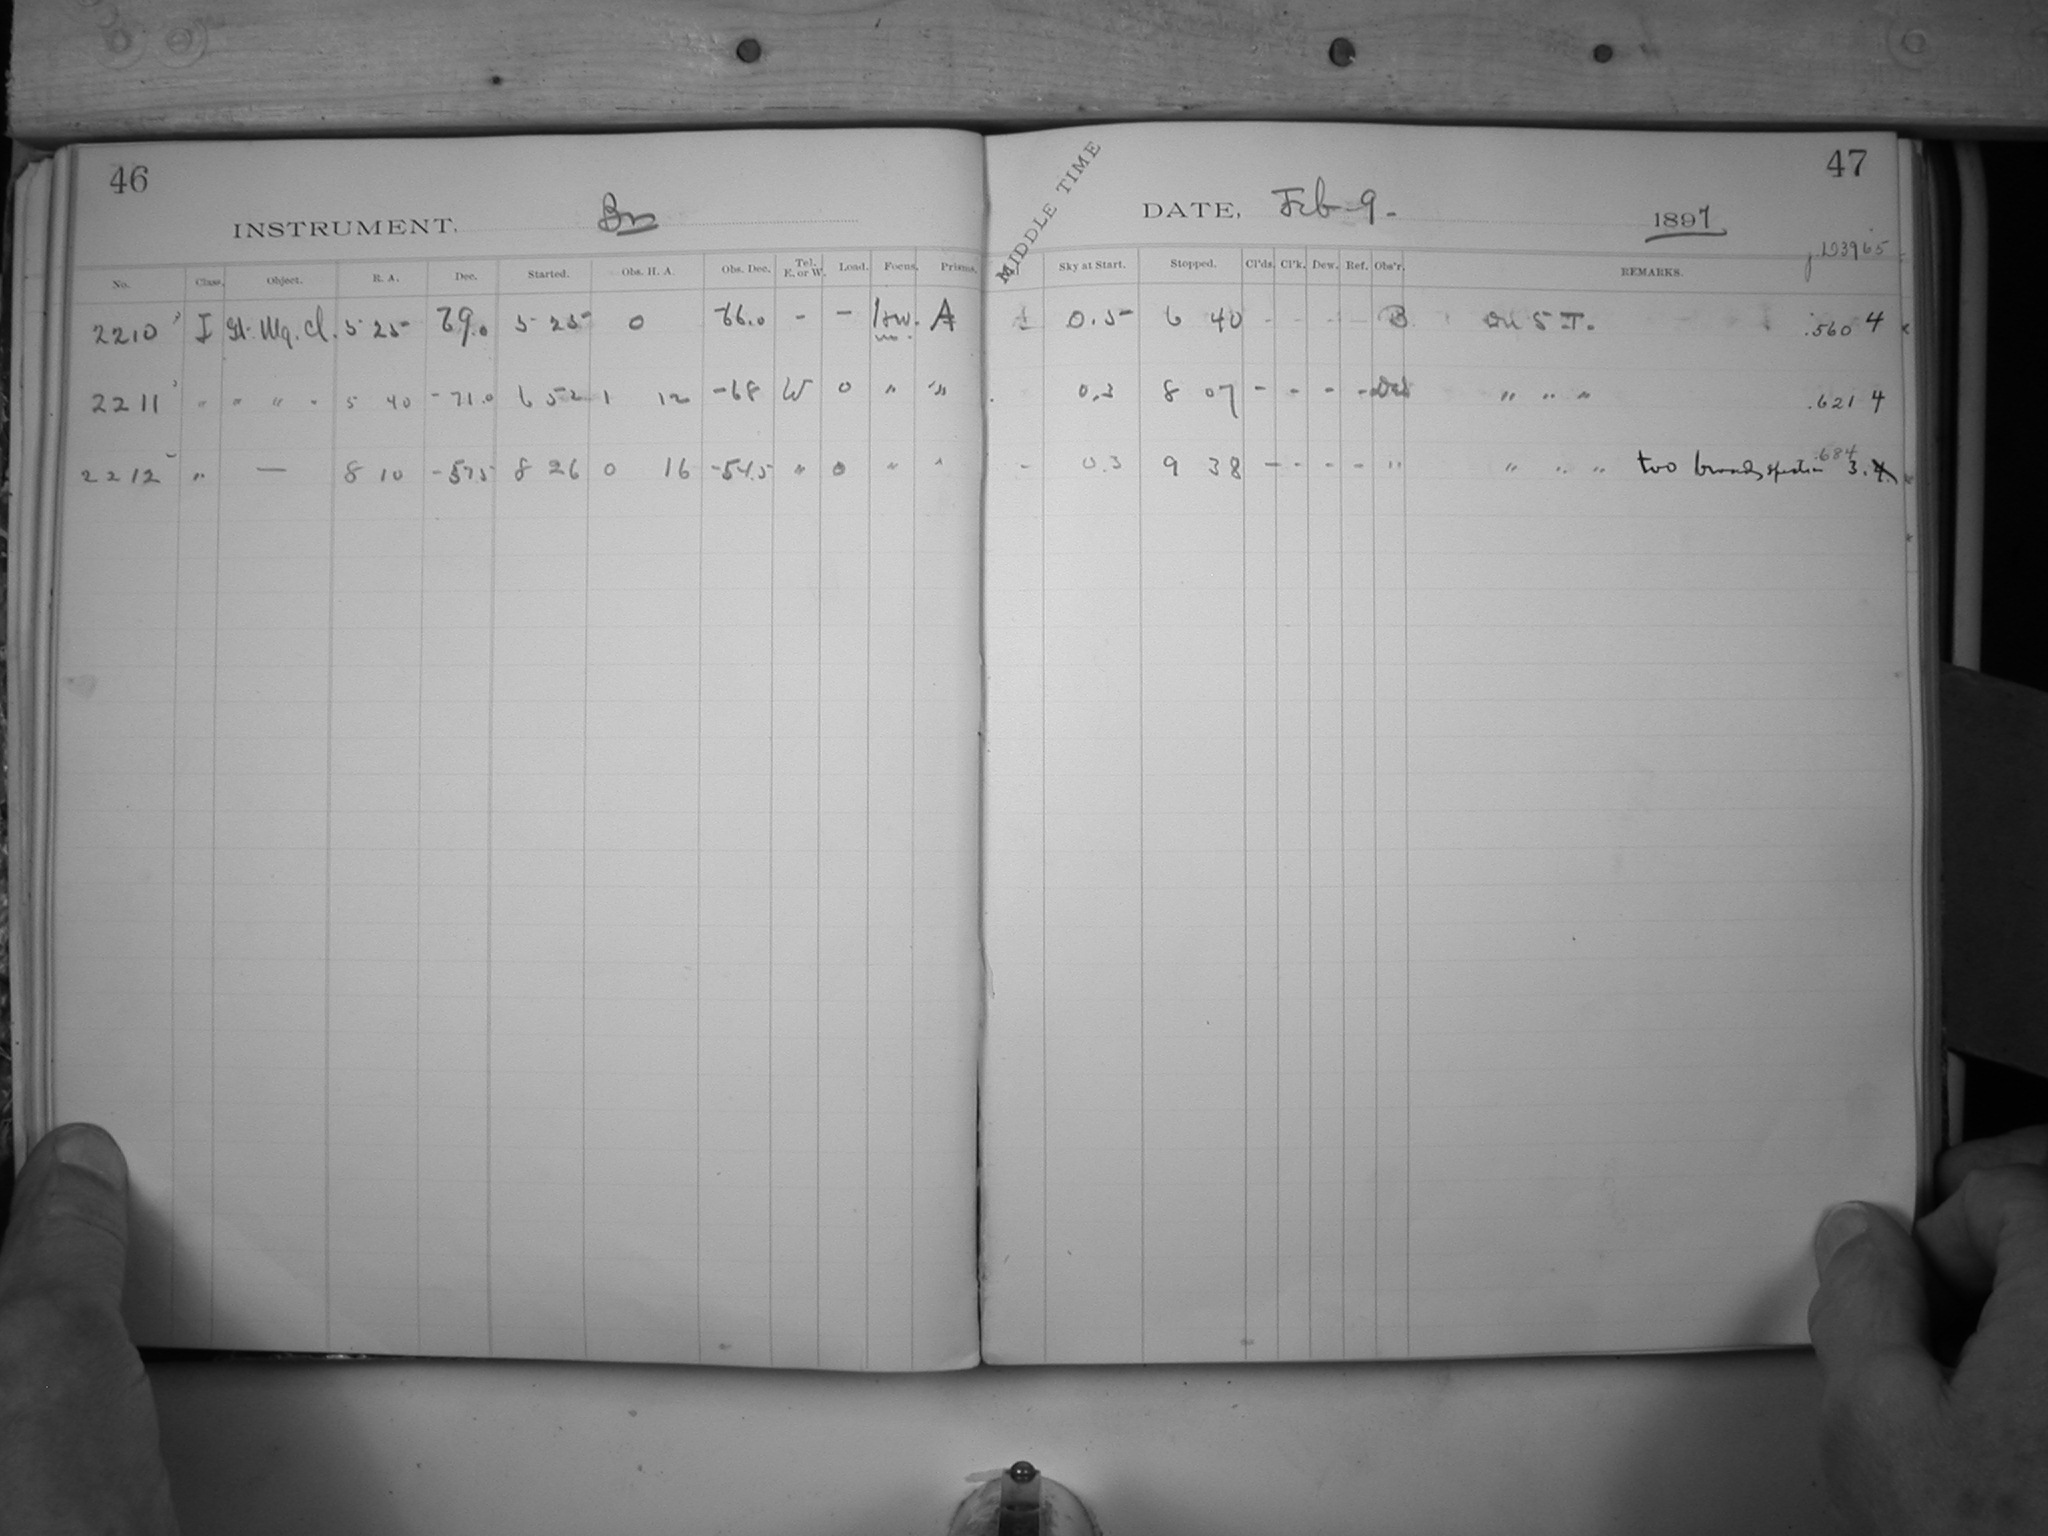 46
INSTRUMENT. Bm
No. Class. Object. R. A. Dec. Started. Obs. H. A. Obs. Dec. Tel. E. or W. Load. Focus. Prisms.
2210 I Gt. Mg. Cl. 5 25 69.0 5 25 0 66.0 - - A
2211 " " " " 5 40 -71.0 6 52 1 12 -68 W 0 " "
2212 " — 8 10 -57.5 8 26 0 16 -54.5 " 0 " "
47
MIDDLE TIME
DATE, Feb 9. 1897
Sky at Start. Stopped. Cl'ds. Cl'k. Dew. Ref. Obs'r. REMARKS.
0.5 6 40 - - - - B On S.T. .560 4
0.3 8 07 - - - - " " " .621 4
- 0.3 9 38 - - - - " " " " two broad spectra .684 3.